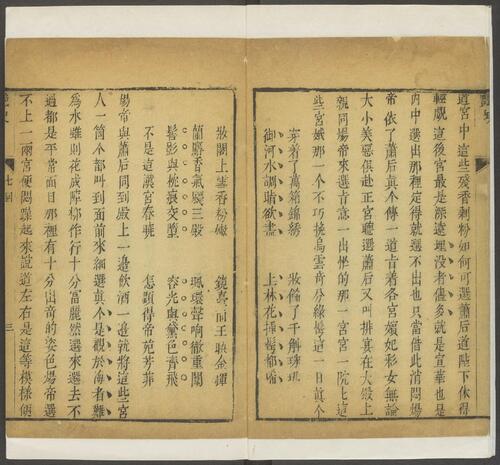 道宮中這些殘香剩粉如何可選蕭后道陛下休得
輕覷這後宮最是深遠埋没者儘多就是宣華也是
內中選出那裡定得就選不出也只當借此消悶煬
帝依了蕭后真个傳一道旨着各宮嬪妃彩女無論
大小美惡俱赴正宮聽選蕭后又叫排宴在大殿上
親同煬帝來選旨意一出的那一宮宮一院這
些宮娥那一个不巧挽烏雲奇分綠鬢這一日真个
穿着了萬箱錦綉 妝餙了千斛珠璣
御河水調脂欲盡 上林花插鬢都稀
妝閣上雲香粉嫩 鏡臺前玉映金輝
蘭麝香氣襲三殿 珮環聲响徹重闈
鬢影與桃交墮 容光與黛色齊飛
不是濃宮春曉 怎顯得帝苑芳菲
煬帝與蕭后同到殿上一邊飲酒一邊就將這些宮
人一箇个都叫到面前來細選真个是觀於海者難
為水雖則花成隊柳作行十分富麗然選來選去不
過都是平常面目那裡有十分出竒的姿色煬帝選
不上一兩宮便悶躁起來說道左右是這等模樣便
艷史 七囘 三